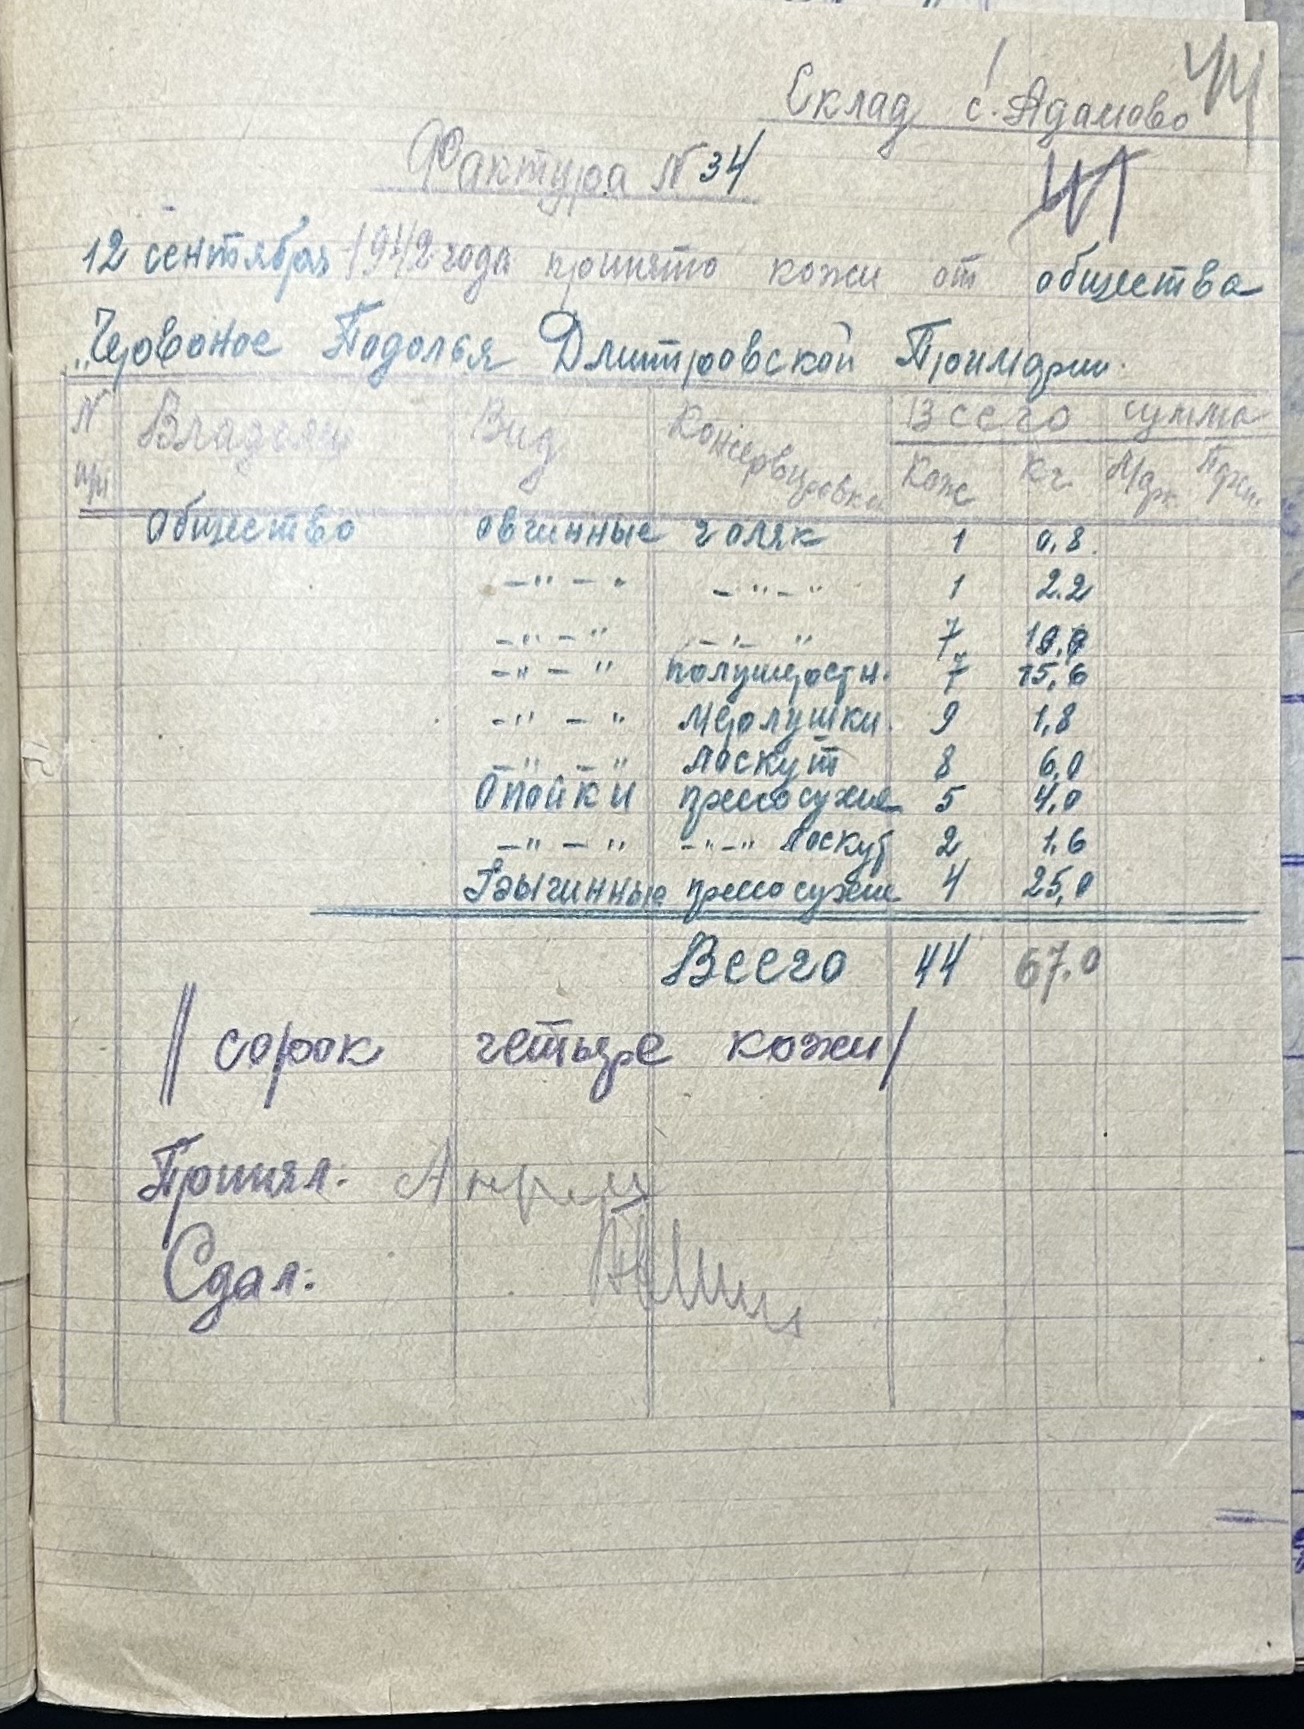 Склад с. Адамово
Фактура N 34
41
12 сентября 1942 года принято кожи от общества
„Червоное Подолья Дмитровской Примарии.
N п/п Владелец Вид Консервировка Всего сумма
Кож Кг. Марк. Пфен.
Общество овчинные голяк 1 0,8.
—"—" —"—" 1 2.2
—"—" —"—" 7
—"—" полушерстн. 7 15,6
—"—" мерлушки. 9 1,8
—"—" Лоскут 8 6,0
Опойки прессосухие 5 4,0
—"—" —"—" Лоскут 2 1,6
Бычинные прессосухие 4 25,0
Всего 44 67.0
// сорок четыре кожи/
Принял:
Сдал: